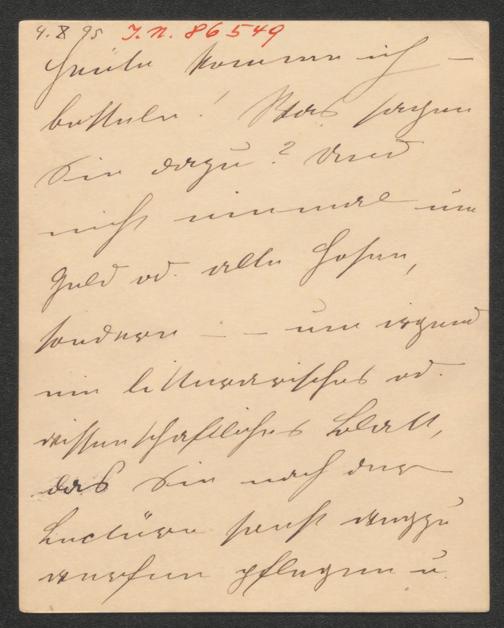 4. X 95 J. N. 86549
Heute komme ich –
betteln! Was sagen
Sie dazu? Und
nicht einmal um
Geld od. alte Hosen,
sondern – – um irgend
ein litterarisches od.
wissenschaftliches Blatt,
das Sie nach der
Lectüre sonst wegzu
werfen pflegen u.